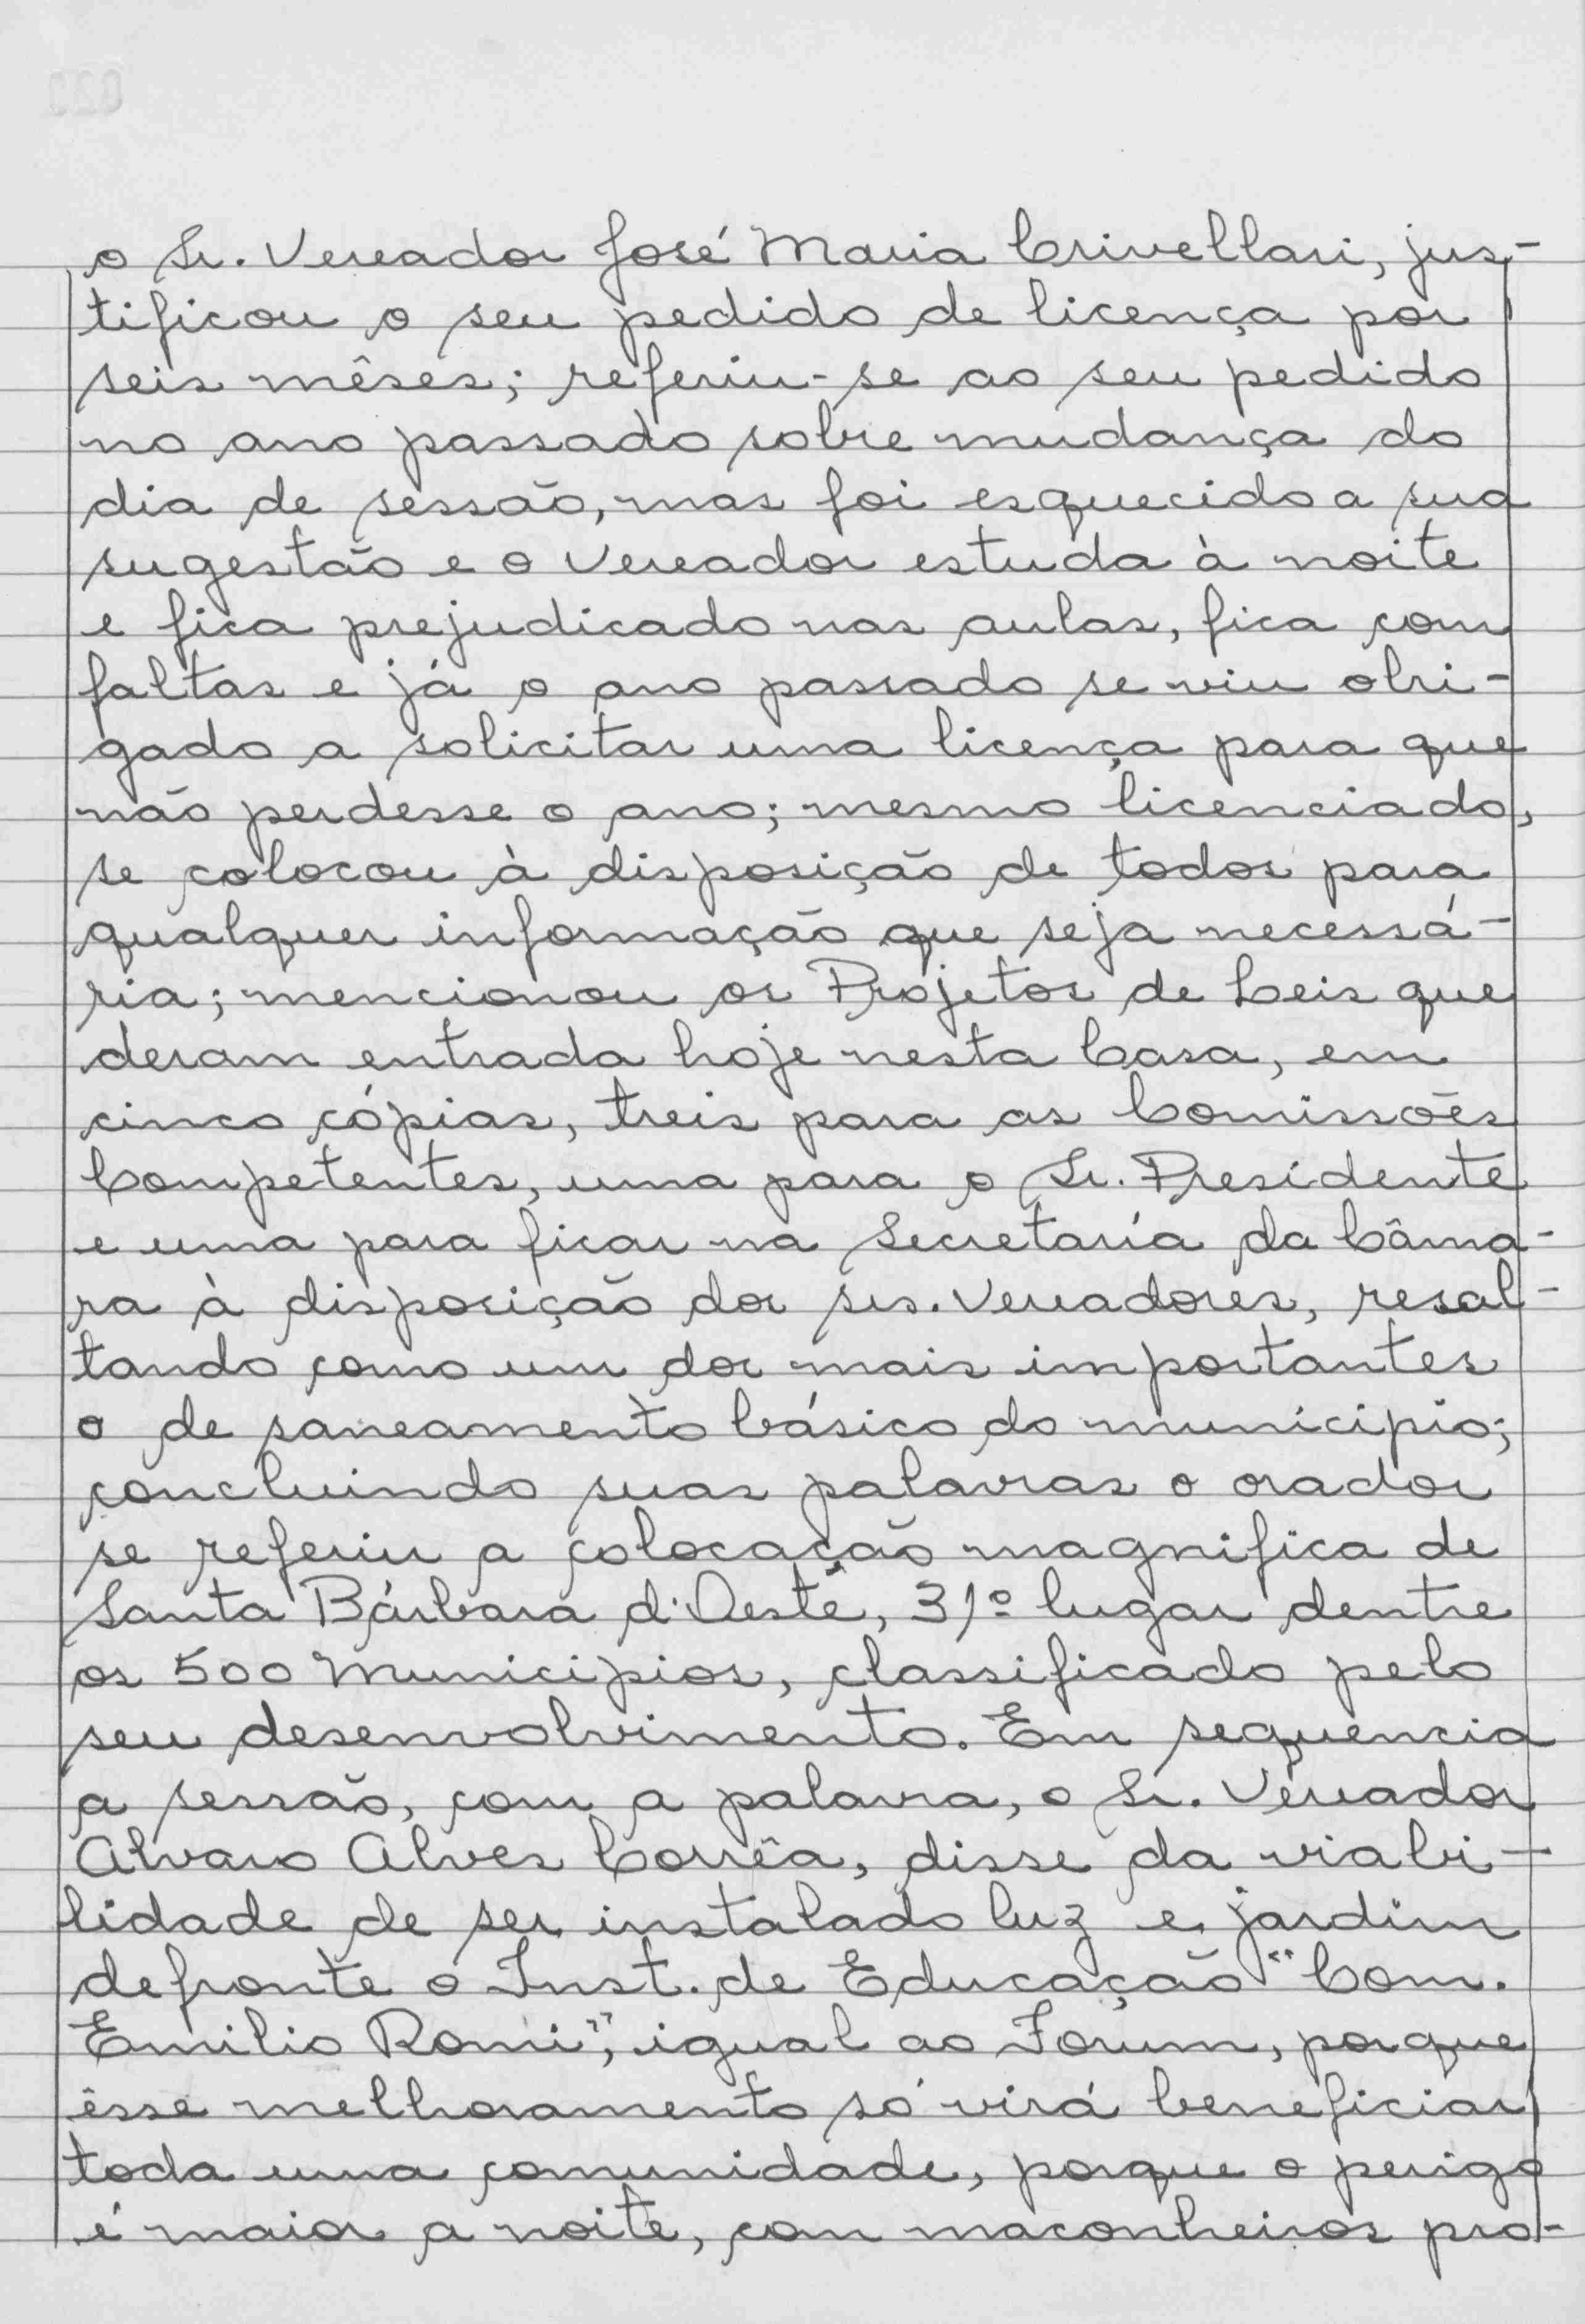 o Sr. Vereador José Maria Crivellari, jus-
tificou o seu pedido de licença por
seis mêses; referiu-se ao seu pedido
no ano passado sobre mudança do
dia de sessão, mas foi esquecido a sua
sugestão e o Vereador estuda à noite
e fica prejudicado nas aulas, fica com
faltas e já o ano passado se viu obri-
gado a solicitar uma licença para que
não perdesse o ano; mesmo licenciado,
se colocou à disposição de todos para
qualquer informação que seja necessá-
ria; mencionou os Projetos de Leis que
deram entrada hoje nesta Casa, em
cinco cópias, treis para as Comissões
Competentes, uma para o Sr. Presidente
e uma para ficar na Secretaria da Câma-
ra à disposição dos srs. Vereadores, resal-
tando como um dos mais importantes
o de saneamento básico do município;
concluindo suas palavras o orador
se referiu a colocação magnifica de
Santa Bárbara d'Oeste, 31º lugar dentre
os 500 Municipios, classificado pelo
seu desenvolvimento. Em sequencia
a sessão, com a palavra, o Sr. Vereador
Alvaro Alves Corrêa, disse da viabi-
lidade de ser instalado luz e jardim
defronte o Inst. de Educação "Com.
Emilio Romi", igual ao Forum, porque
êsse melhoramento só virá beneficiar
toda uma comunidade, porque o perigo
é maior a noite, com maconheiros pro-